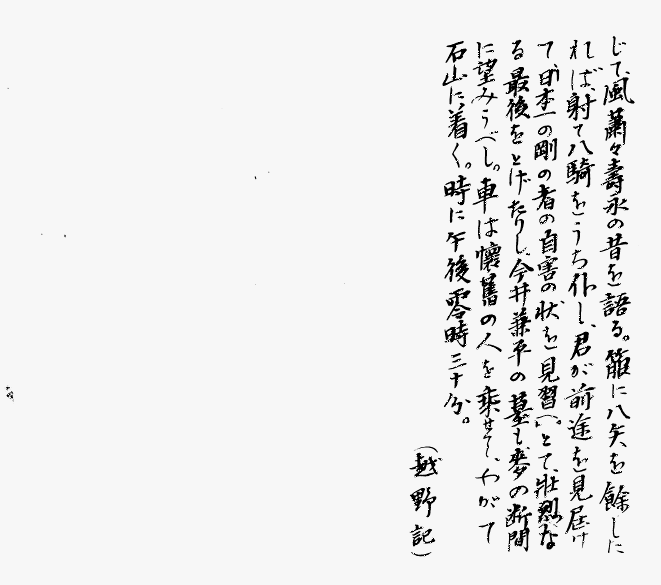 じて、風蕭々壽永の昔を語る。箙に八矢を餘しに
れば、射て八騎をうち仆し、君が前途を見届け
て、「日本一の剛の者の自害の状を見習へ。」とて、壯烈な
る最後をとげたりし、今井兼平の墓も麥の断間
に望みうべし。車は懷舊の人を乗せて、やがて
石山に着く。時に午後零時三十分。
(越野記)